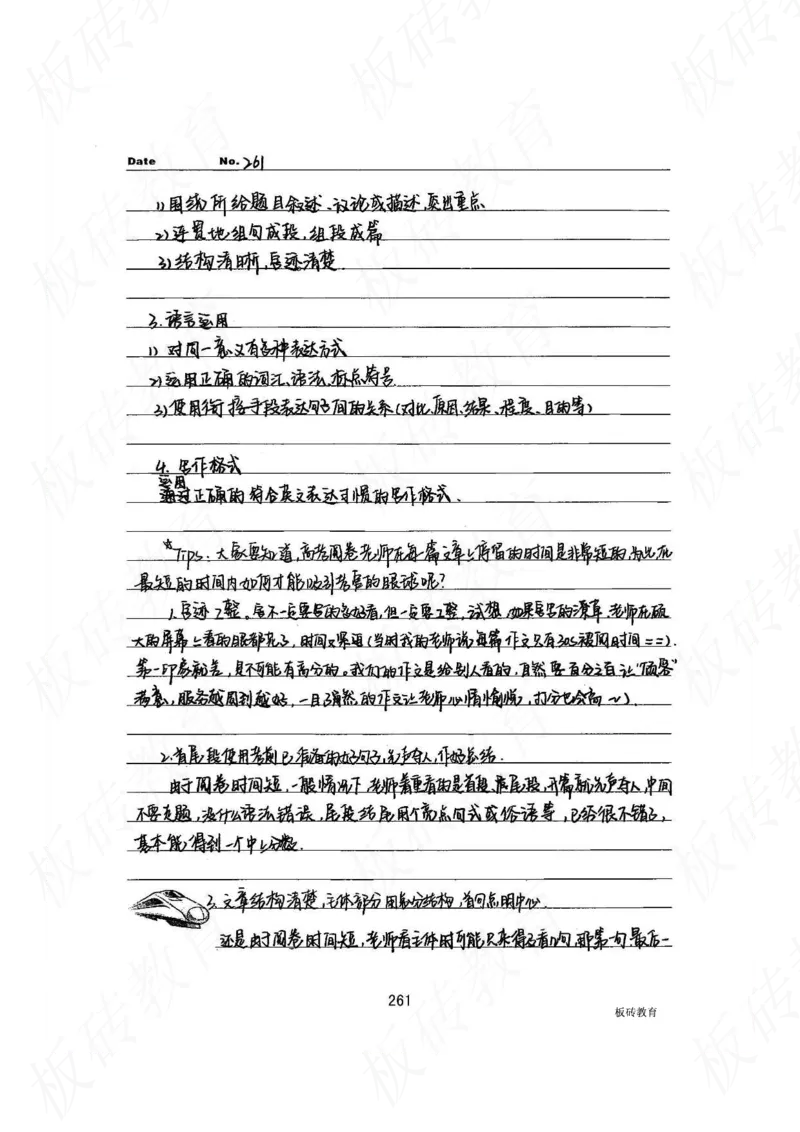 Date No. 261
1) 围绕所给题目叙述、议论或描述,突出重点
2) 连贯地组句成段,组段成篇
3) 结构清晰,字迹清楚
3. 语言运用
1) 对同一意义有各种表达方式
2) 运用正确的词汇、语法、标点符号
3) 使用衔接手段表达句子间的关系(对比、原因、结果、程度、目的等)
4. 写作格式
运用
正确的符合英文表达习惯的写作格式.
☆Tips: 大家要知道,高考阅卷老师在每篇文章上停留的时间是非常短的,为此在
最短的时间内如何才能吸引老师的眼球呢?
1. 字迹工整。字不一定要写的多好看,但一定要工整,试想,如果写的潦草,老师在硕
大的屏幕上看的眼都花了,时间又紧迫(当时我的老师说每篇作文只有30s被阅时间==).
第一印象就差,是不可能有高分的。我们的作文是给别人看的,自然要百分之百让“顾客”
满意,服务越周到越好,一目了然的作文让老师心情愉悦,打分也会高~).
2. 首尾段使用考前已准备的好句子,先声夺人,作好总结.
由于阅卷时间短,一般情况下老师着重看的是首段、尾段,开篇就先声夺人,中间
不要走题,没什么语法错误,尾段结尾用个高点句式或俗语等,已经很不错了,
基本能得到一个中上分数.
3. 文章结构清楚,主体部分用总分结构,首句点明中心.
还是由于阅卷时间短,老师看主体时可能只来得及看几句,那第一句、最后一
261
板砖教育